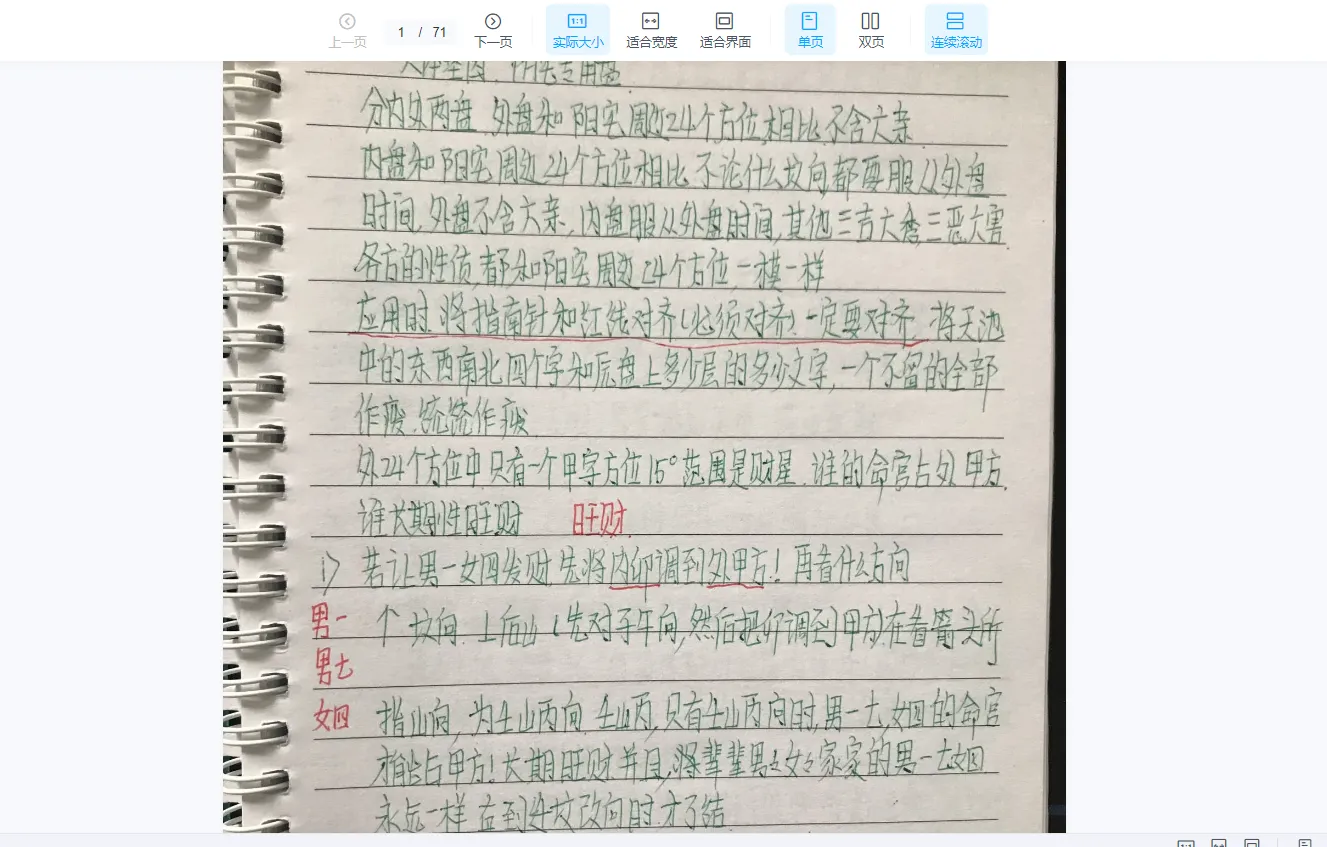 上一页 1 / 71 下一页 实际大小 适合宽度 适合界面 单页 双页 连续滚动
分内外两盘 外盘和阳宅周边24个方位相比不含六亲
内盘和阳宅周边24个方位相比 不论什么坟向都要服从外盘
时间 外盘不含六亲 内盘服从外盘时间 其他三吉六秀三恶六害
各方的性质 都和阳宅周边24个方位一模一样
应用时 将指南针和红线对齐(必须对齐) 一定要对齐 将天池
中的东西南北四个字和底盘上多少层的多少文字 一个不留的全部
作废 统统作废
外24个方位中只有一个甲字方位15°范围是财星 谁的命宫占外甲方
谁长期性旺财 旺财
1) 若让男一女四发财 先将内卯调到外甲方! 再看什么方向
男一 个坟向 上后山(先对子午向,然后把卯调到甲方)在看箭头所
男七
女四 指山向 为壬山丙向 壬山丙 只有壬山丙向时 男一七 女四的命宫
才能占甲方! 长期旺财 并且 将辈辈男男女女家家的男一七女四
永远一样 直到迁坟改向时才了结